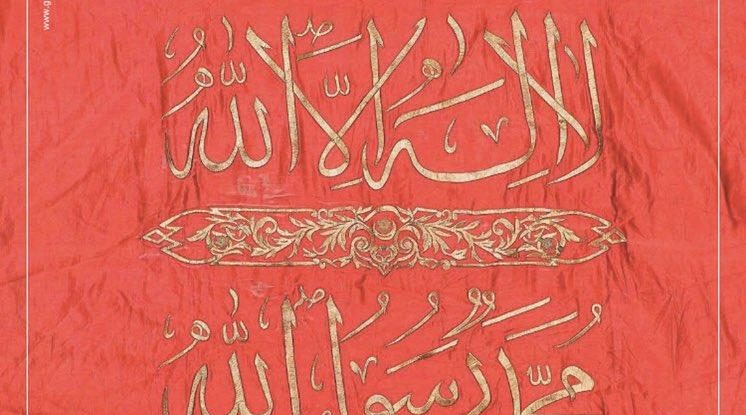 www.g
لا إله إلا الله
محمد رسول الله